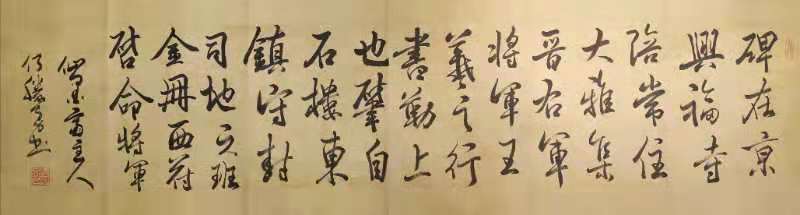 碑在京
興福寺
陪常住
大雅集
晋右軍
將軍王
羲之行
書勒上
也肇自
石樓東
鎮守對
司地之班
金冊西符
啓命將軍
齋主人
書